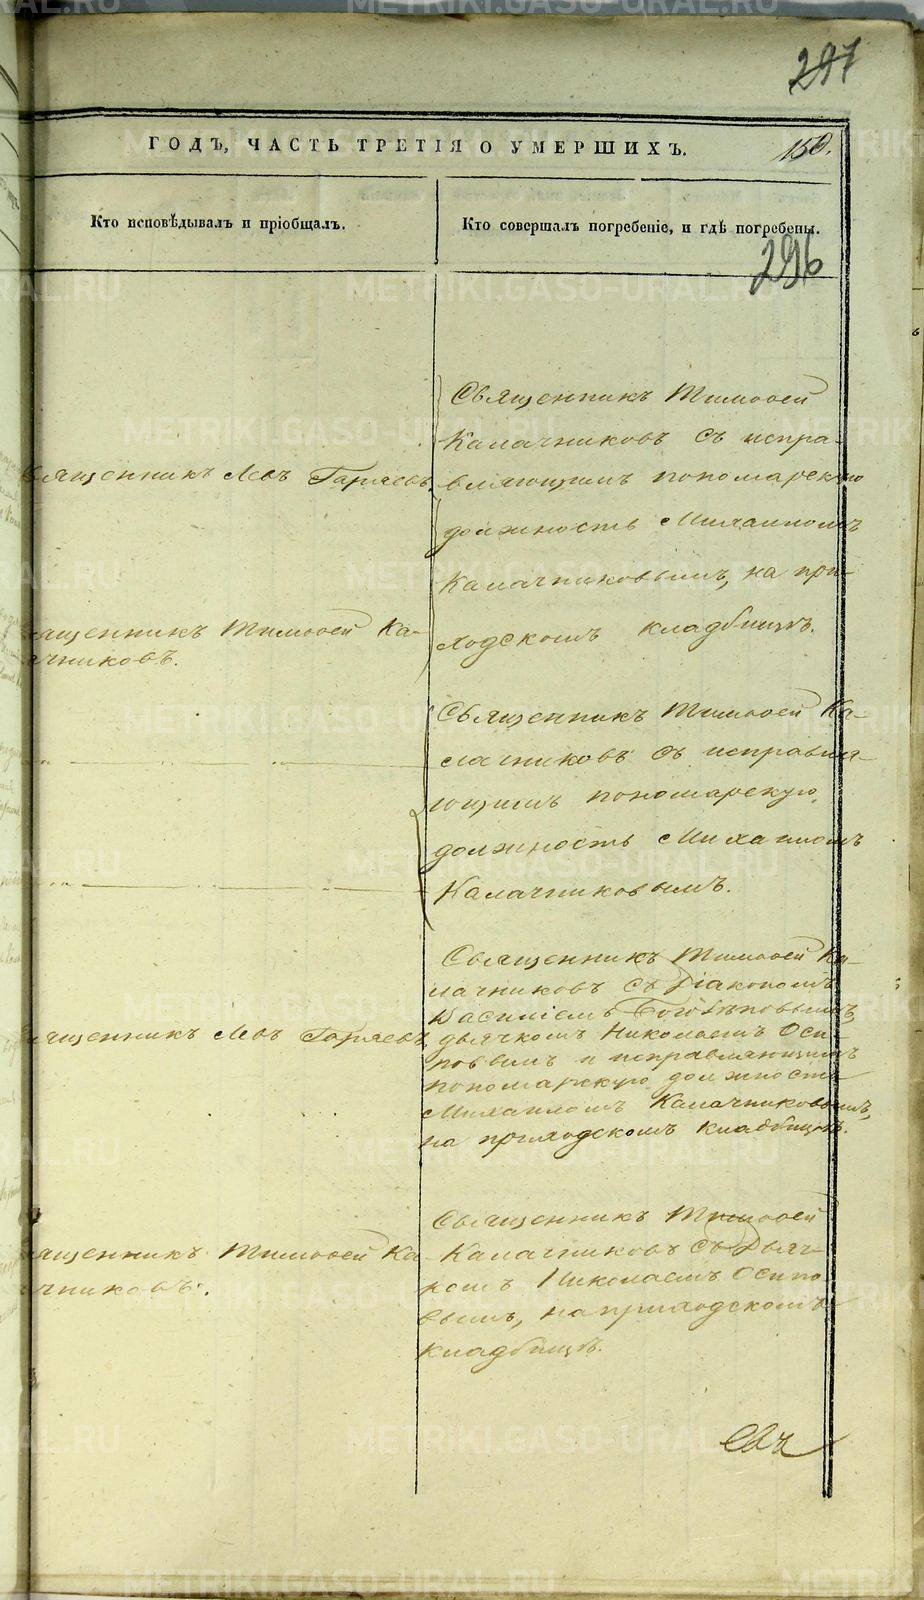 297
ГОДЪ, ЧАСТЬ ТРЕТІЯ О УМЕРШИХЪ.
150.
Кто исповѣдывалъ и пріобщалъ.
Кто совершалъ погребеніе, и гдѣ погребены.
296
Священникъ Тимоѳей
Калачниковъ съ испра-
вляющимъ пономарскую
должность Михаиломъ
Калачниковымъ, на при-
ходскомъ кладбищѣ.
священникъ Левъ Гаряевъ.
ященникъ Тимоѳей Ка-
ачниковъ.
Священникъ Тимоѳей Ка-
лачниковъ съ исправля-
ющимъ пономарскую
должность Михаиломъ
Калачниковымъ.
Священникъ Тимоѳей Ка-
лачниковъ съ Діакономъ
Василіемъ Боголѣповымъ,
дьячкомъ Николаемъ Оси-
повымъ и исправляющимъ
пономарскую должность
Михаиломъ Калачниковымъ,
на приходскомъ кладбищѣ.
ященникъ Левъ Гаряевъ.
Священникъ Тимоѳей
Калачниковъ съ Дьяч-
комъ Николаемъ Осипо-
вымъ, на приходскомъ
кладбищѣ.
ященникъ Тимоѳей Ка-
чниковъ.
Свя
METRIKI.GASO-URAL.RU